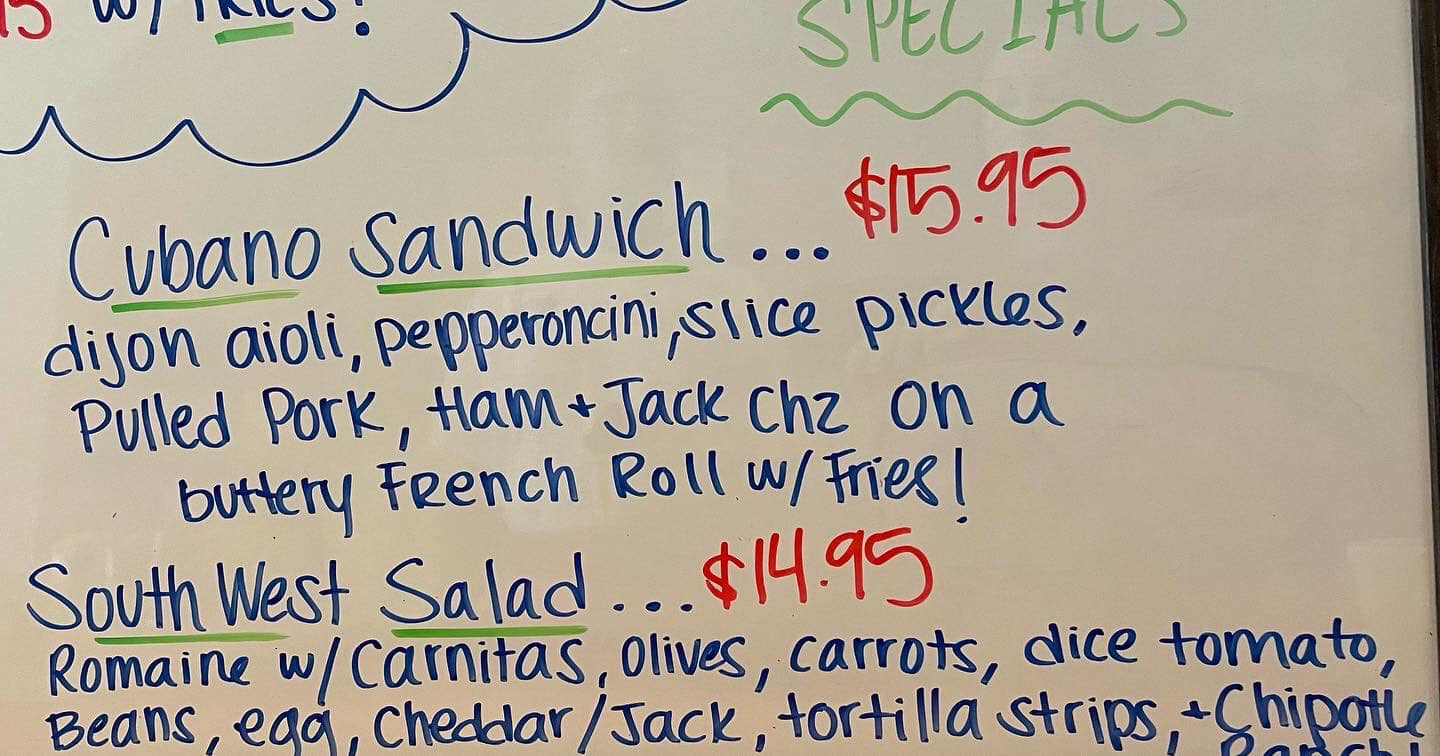 15 w/ FRIES!
SPECIALS
Cubano Sandwich ... $15.95
dijon aioli, pepperoncini, slice pickles,
Pulled Pork, Ham + Jack Chz on a
buttery French Roll w/ Fries!
South West Salad ... $14.95
Romaine w/ Carnitas, Olives, carrots, dice tomato,
Beans, egg, Cheddar/Jack, tortilla strips, + Chipotle